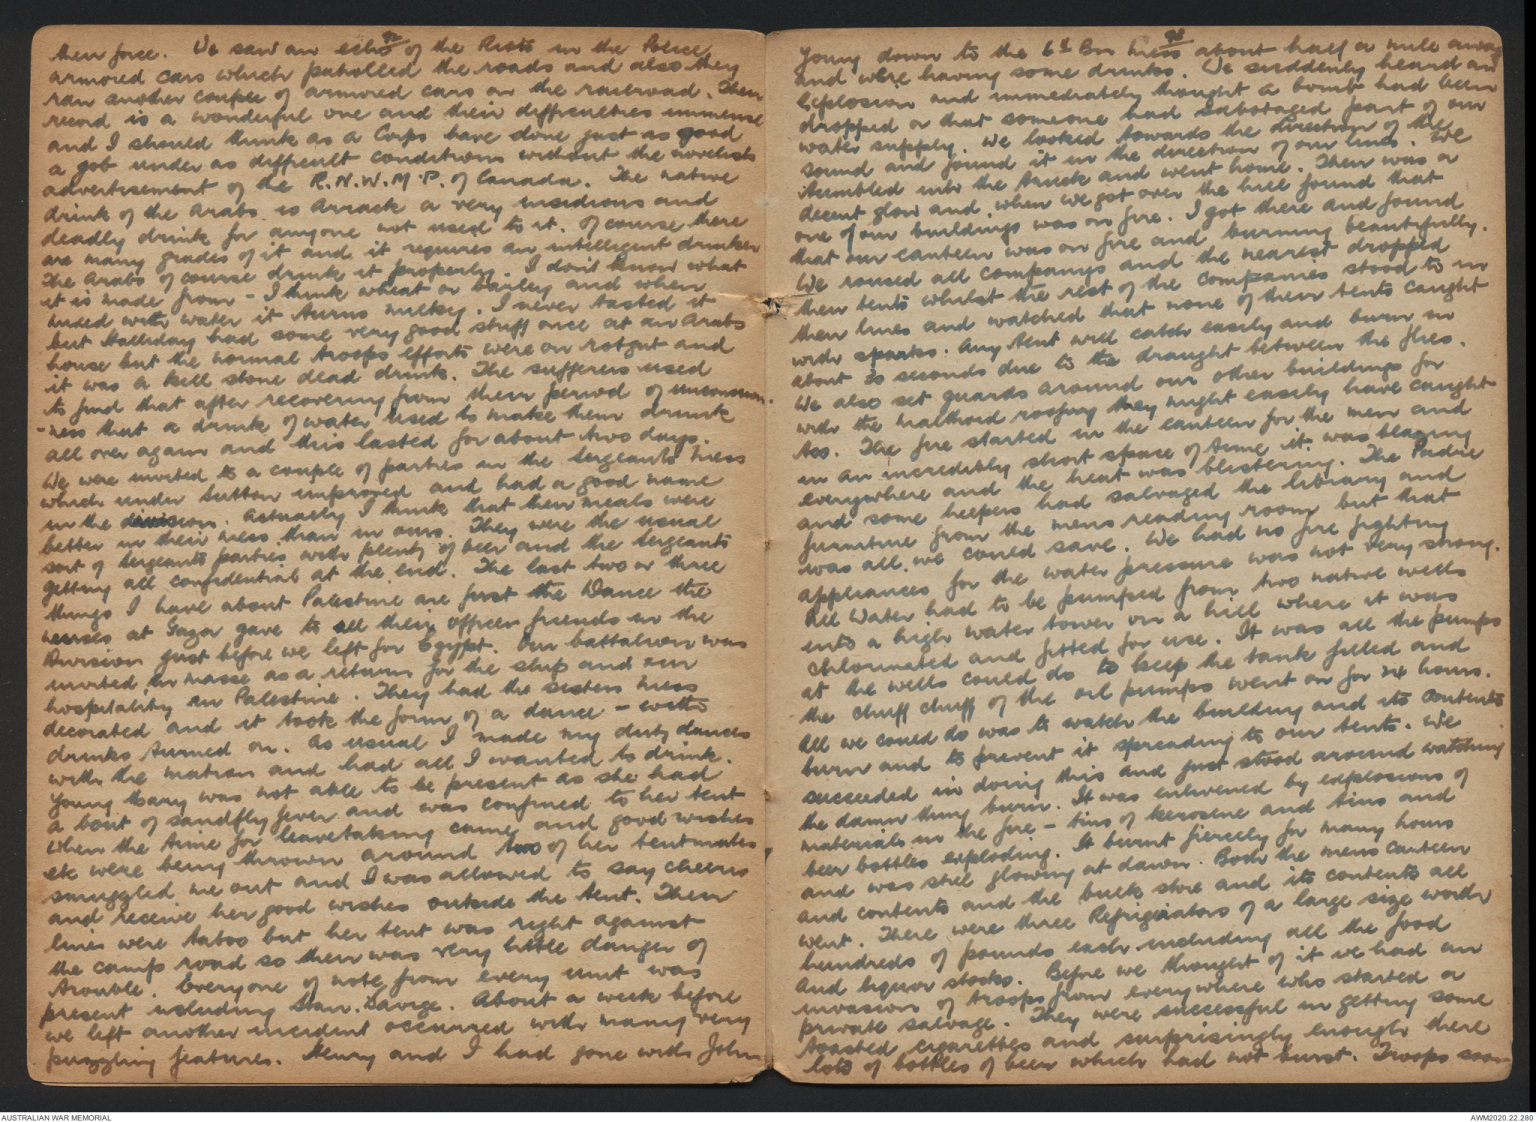 97
their force. We saw an echo of the Riots in the Police
armored cars which patrolled the roads and also they
ran another couple of armored cars on the railroad. Their
record is a wonderful one and their difficulties immense
and I should think as a Corps have done just as good
a gob under as difficult conditions without the novelists
advertisement of the R.N.W.M.P. of Canada. The native
drink of the Arabs is Arrack a very insidious and
deadly drink for anyone not used to it. Of course there
are many grades of it and it requires an intelligent drinker
The Arabs of course drink it properly. I don't know what
it is made from - I think wheat or barley and when
mixed with water it turns milky. I never tasted it
but Halliday had some very good stuff once at an Arabs
house but the normal troops efforts were on rotgut and
it was a kill stone dead drink. The sufferers used
to find that after recovering from their period of unconscious
-ness that a drink of water used to make them drunk
all over again and this lasted for about two days.
We were invited to a couple of parties in the Sergeants Mess
which under Sutton improved and had a good name
in the division. Actually I think that their meals were
better in their mess than in ours. They were the usual
sort of Sergeants parties with plenty of beer and the Sergeants
getting all confidential at the end. The last two or three
things I have about Palestine are first the Dance the
nurses at Gaza gave to all their officer friends in the
Division just before we left for Egypt. Our battalion was
invited en masse as a return for the ship and our
hospitality in Palestine. They had the sisters mess
decorated and it took the form of a dance - with
drinks turned on. As usual I made my duty dances
with the matron and had all I wanted to drink.
Young Mary was not able to be present as she had
a bout of sandfly fever and was confined to her tent
when the time for leavetaking came and good wishes
etc were being thrown around two of her tentmates
smuggled me out and I was allowed to say cheerio
and receive her good wishes outside the tent. Their
lines were taboo but her tent was right against
the camp road so there was very little danger of
trouble. Everyone of note from every unit was
present including Stan. Savige. About a week before
we left another incident occurred with many very
puzzling features. Henry and I had gone with John
98
Young down to the 6th Bn mess about half a mile away
and were having some drinks. We suddenly heard an
Explosion and immediately thought a bomb had been
dropped or that someone had sabotaged part of our
water supply. We looked towards the direction of the
sound and found it in the direction of our lines. We
tumbled into the truck and went home. There was a
decent glow and when we got over the hill found that
one of our buildings was on fire. I got there and found
that our canteen was on fire and burning beautifully.
We roused all companys and the nearest dropped
their tents whilst the rest of the companies stood to in
their lines and watched that none of their tents caught
with sparks. Any tent will catch easily and burn in
about 30 seconds due to the draught between the flies.
We also set guards around our other buildings for
with the malthoid roofing they might easily have caught
too. The fire started in the canteen for the men and
in an incredibly short space of time it was blazing
everywhere and the heat was blistering. The Padre
and some helpers had salvaged the library and
furniture from the mens reading room but that
was all we could save. We had no fire fighting
appliances for the water pressure was not very strong.
All Water had to be pumped from two native wells
into a high water tower on a hill where it was
chlorinated and fitted for use. It was all the pumps
at the wells could do to keep the tank filled and
the chuff chuff of the oil pumps went on for 24 hours.
All we could do was to watch the building and its contents
burn and to prevent it spreading to our tents. We
succeeded in doing this and just stood around watching
the damn thing burn. It was enlivened by explosions of
materials in the fire - tins of kerosene and tins and
beer bottles exploding. It burnt fiercely for many hours
and was still glowing at dawn. Both the mens canteen
and contents and the bulk store and its contents all
went. There were three Refrigirators of a large size worth
hundreds of pounds each including all the food
and liquor stocks. Before we thought of it we had an
invasion of troops from everywhere who started a
private salvage. They were successful in getting some
toasted cigarettes and surprisingly enough there
lots of bottles of beer which had not burst. Troops soon
AUSTRALIAN WAR MEMORIAL
AWM2020.22.280